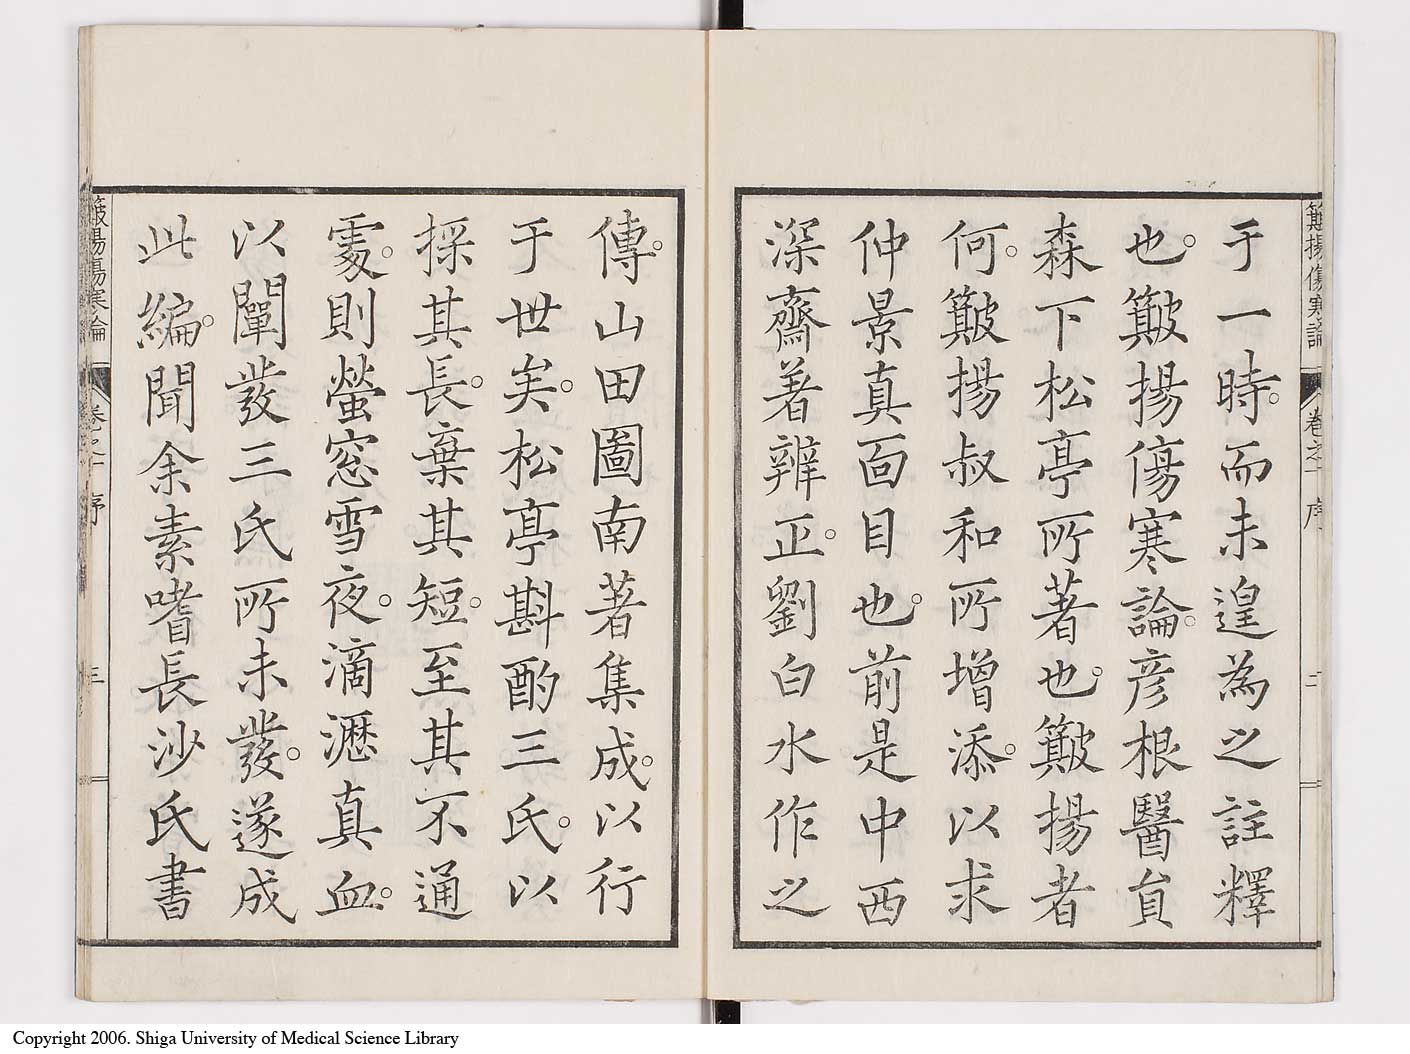 簸揚傷寒論 卷之一 序 二
于一時。而未遑為之註釋
也。簸揚傷寒論。彦根醫員
森下松亭所著也。簸揚者
何。簸揚叔和所增添。以求
仲景真面目也。前是中西
深齋著辨正。劉白水作之
傳。山田圖南著集成。以行
于世矣。松亭斟酌三氏。以
採其長。棄其短。至其不通
處。則螢窓雪夜。滴瀝真血。
以闡發三氏所未發。遂成
此編。聞余素嗜長沙氏書
簸揚傷寒論 卷之一 序 三
Copyright 2006. Shiga University of Medical Science Library